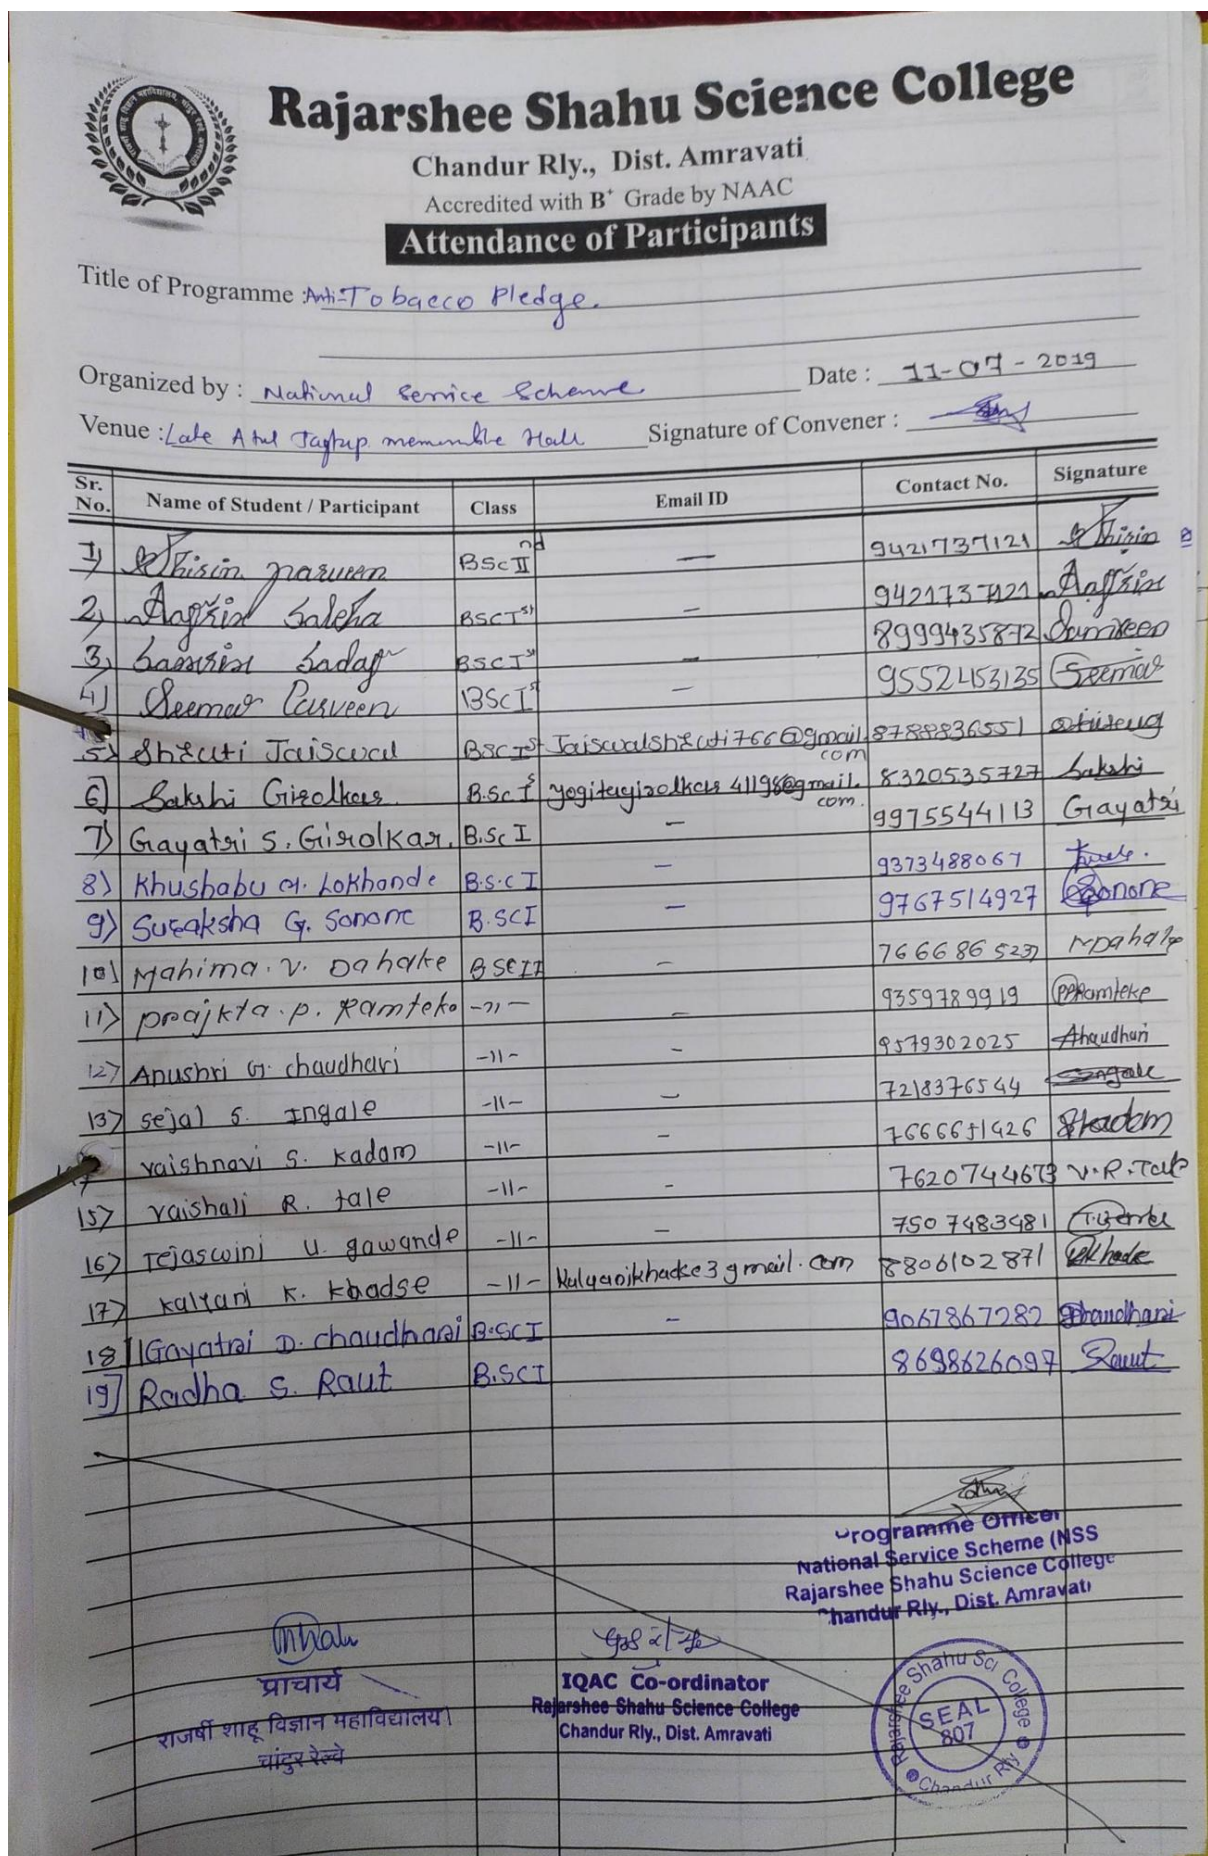 Rajarshee Shahu Science College
Chandur Rly., Dist. Amravati
Accredited with B+ Grade by NAAC
Attendance of Participants
Title of Programme : Anti-Tobacco Pledge.
Organized by : National Service Scheme
Date : 11-07-2019
Venue : Late Atul Jagtap Hall
Signature of Convener :
Sr. No. Name of Student / Participant Class Email ID Contact No. Signature
1) Parveen BSc IInd — 9421737121
2) Aafrin Saleha BSC Ist — Aafrin
3) Samrin Sadaf BSC Ist — 8999435872 Samreen
4) Seemab Parveen BSC Ist — 9552453135 Seemab
5) Shruti Jaiswal BSC Ist Jaiswalshruti766@gmail.com
6) Sakshi Girolkar B.Sc I 8320535727 Sakshi
7) Gayatri S. Girolkar. B.Sc I — 9975544113 Gayatri
8) Khushabu Lokhande B.S.C I — 9373488067
9) Suraksha G. Sonone B.SC I — 9767514927 Sonone
10) Mahima. V. Dahake BSC II —
11) Prajkta. P. Ramteke -11- — 9359789919 PPRamteke
12) Anushri G. chaudhari -11- — 9579302025
13) Sejal S. Ingale -11- — 7218376544
vaishnavi S. kadam -11- — 7666651426
15) vaishali R. tale -11- — 7620744673 V.R.Tale
16) Tejaswini U. gawande -11- — 7507483481
17) kalyani K. khadse -11- 8806102871
18] Gayatri D. chaudhari B.SC I — 9067867282
19] Radha S. Raut B.SC I 8698626097 Raut
Programme Officer
National Service Scheme (NSS
Rajarshee Shahu Science College
Chandur Rly., Dist. Amravati
प्राचार्य
राजर्षी शाहू विज्ञान महाविद्यालय।
चांदुर रेल्वे
IQAC Co-ordinator
Rajarshee Shahu Science College
Chandur Rly., Dist. Amravati
Rajarshee Shahu Sci College
SEAL
807
Chandur Rly